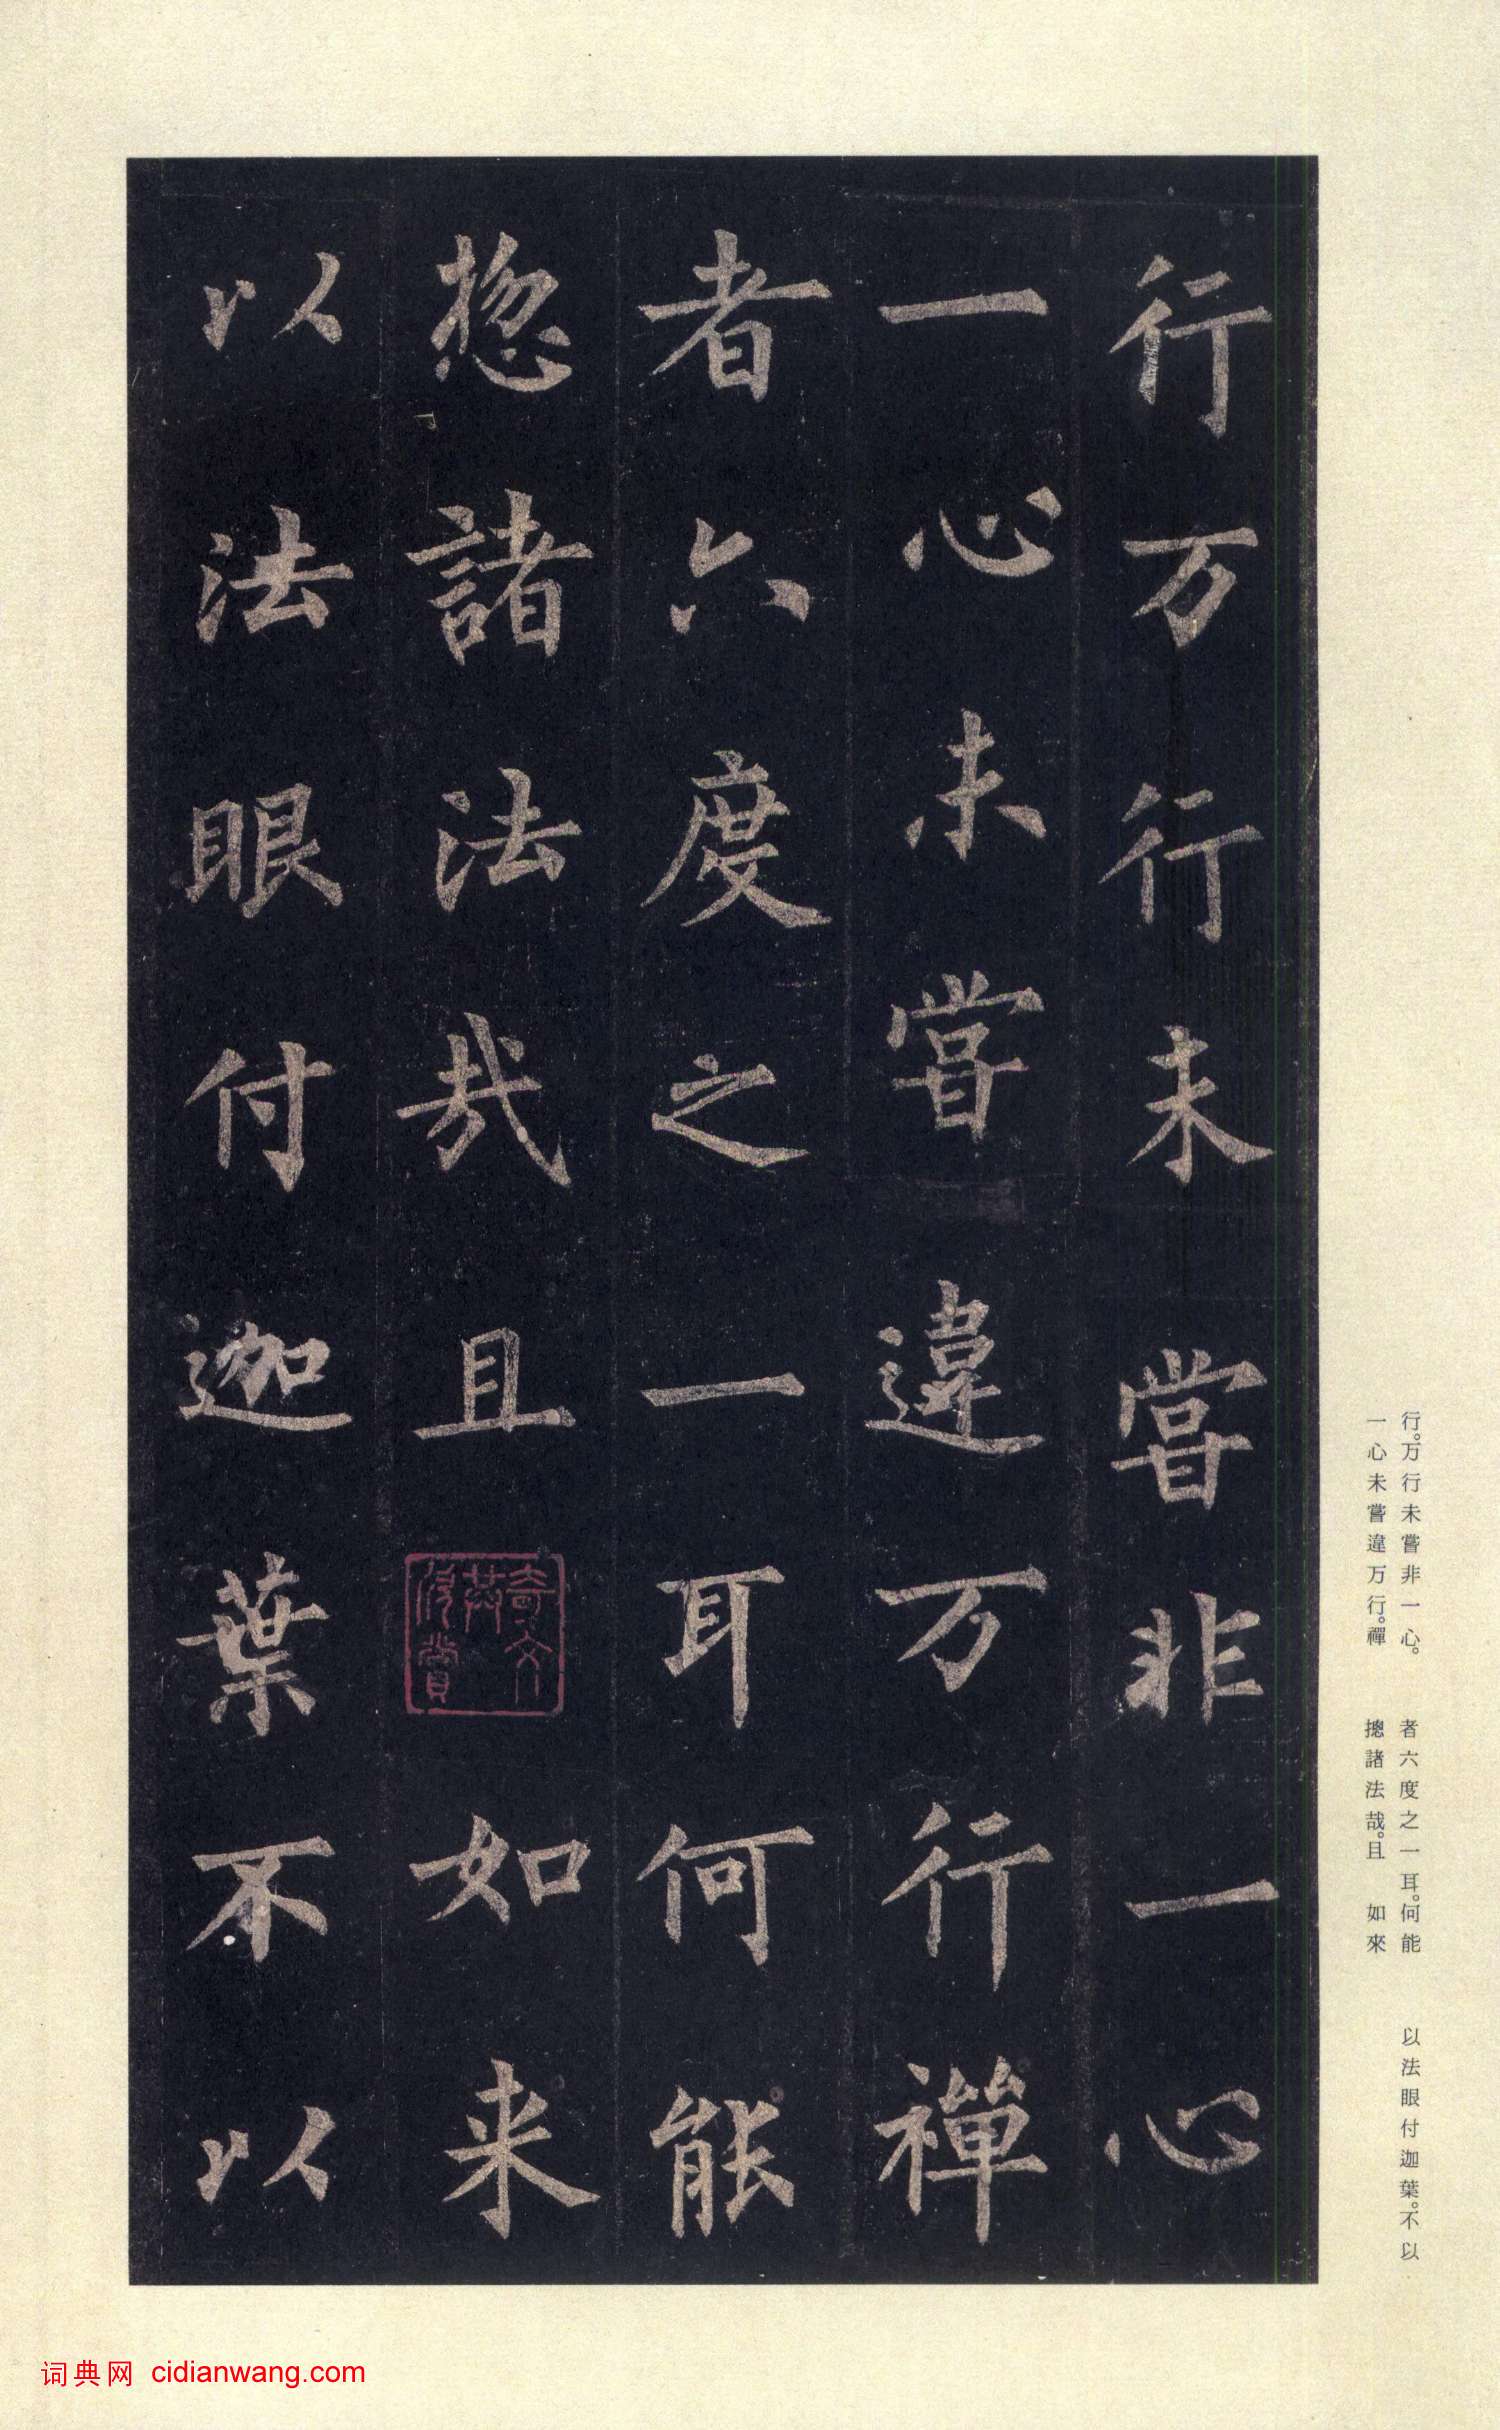 行万行未甞非一心
一心未甞違万行禪
者六度之一耳何能
揔諸法㢤且如来
以法眼付迦葉不以
奇文共欣賞
行。万行未嘗非一心。
一心未嘗違万行。禪
者六度之一耳。何能
摠諸法哉。且　如來
以法眼付迦葉。不以
词典网 cidianwang.com